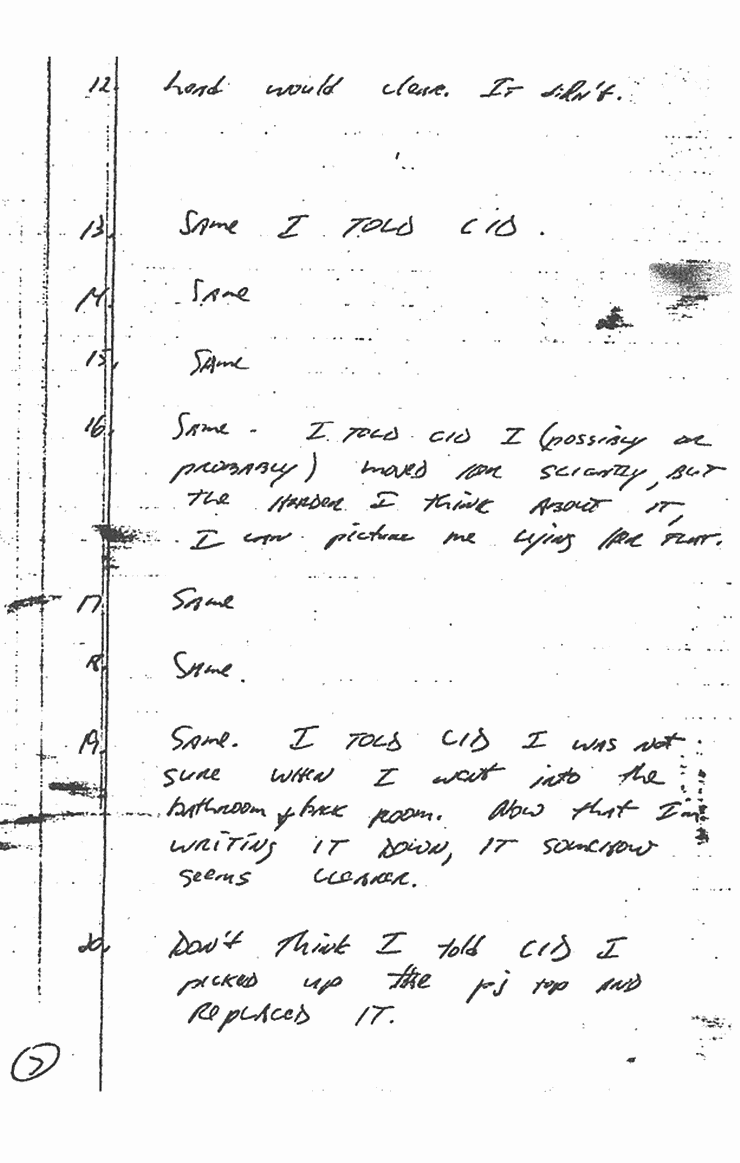 12. head would clear. It didn't.
13. Same I told CID.
14. Same
15. Same
16. Same. I told CID I (possibly or
probably) moved her slightly, but
the harder I think about it,
I can picture me lying her flat.
17. Same
18. Same.
19. Same. I told CID I was not
sure when I went into the
bathroom & back room. Now that I'm
writing it down, it somehow
seems clearer.
20. Don't think I told CID I
picked up the pj top and
replaced it.